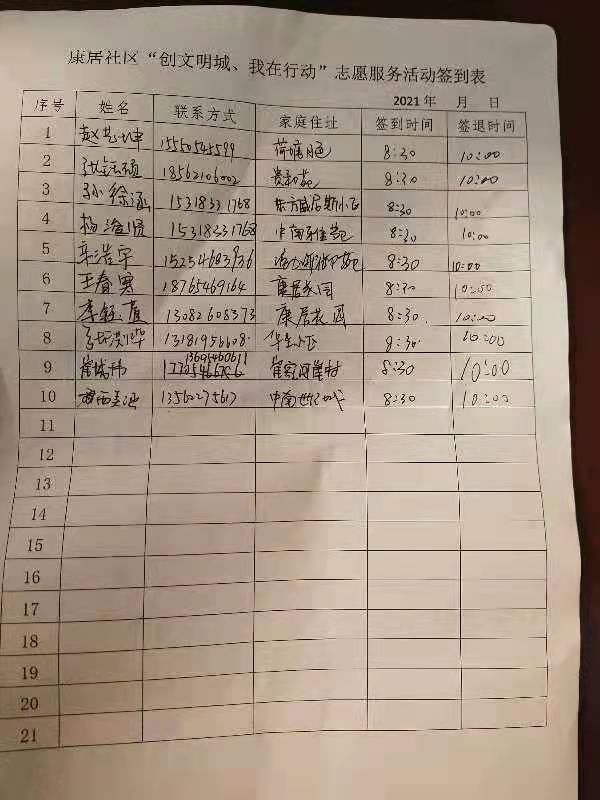 康居社区“创文明城、我在行动”志愿服务活动签到表
2021年 月 日
序号 姓名 联系方式 家庭住址 签到时间 签退时间
1 1550545599 8:30 10:00
2 18562106002 贵和苑 8:30 10:00
3 孙徐涵 15318331768 8:30 10:00
4 杨 15318331768 8:30 10:00
5 辛浩宇 15254683936 8:30 10:00
6 王春寒 18765469164 康居花园 8:30 10:00
7 李钰萱 13082608373 康居花园 8:30 10:00
8 13181956608 8:30 10:00
9 崔 崔家 村 8:30 10:00
10 13560275617 中南世纪城 8:30 10:00
11
12
13
14
15
16
17
18
19
20
21